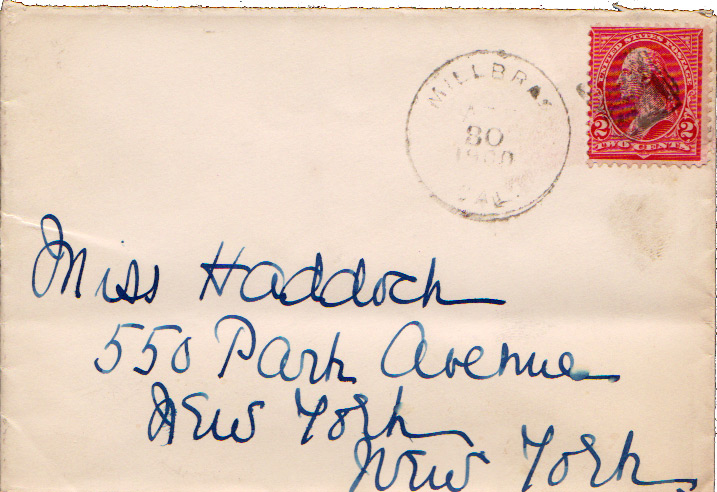 MILLBRAE
30
CAL.
UNITED STATES POSTAGE
2 2
TWO CENTS
Miss Haddock
550 Park Avenue
New York
New York